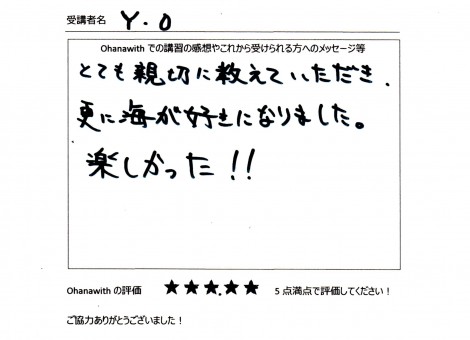 受講者名 Y.O
Ohanawith での講習の感想やこれから受けられる方へのメッセージ等
とても親切に教えていただき、
更に海が好きになりました。
楽しかった!!
Ohanawith の評価 ★★★★★ 5 点満点で評価してください！
ご協力ありがとうございました！